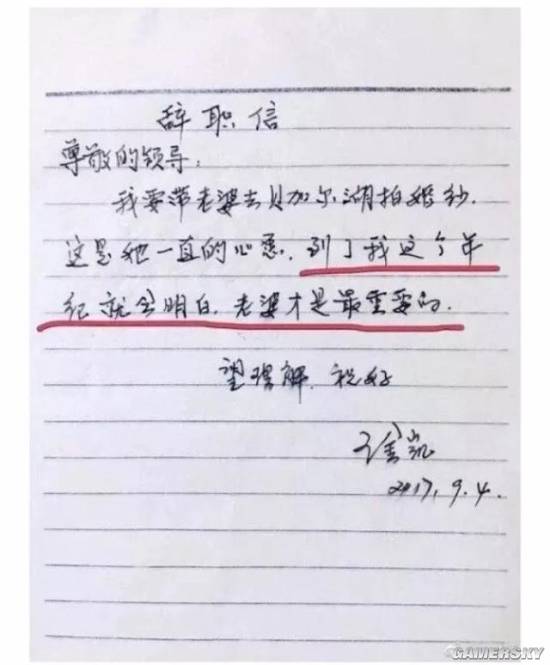 辞职信
尊敬的领导:
我要带老婆去贝加尔湖拍婚纱.
这是她一直的心愿.到了我这个年
纪就会明白.老婆才是最重要的.
望理解.祝好
徐凯
2017.9.4.
GAMERSKY